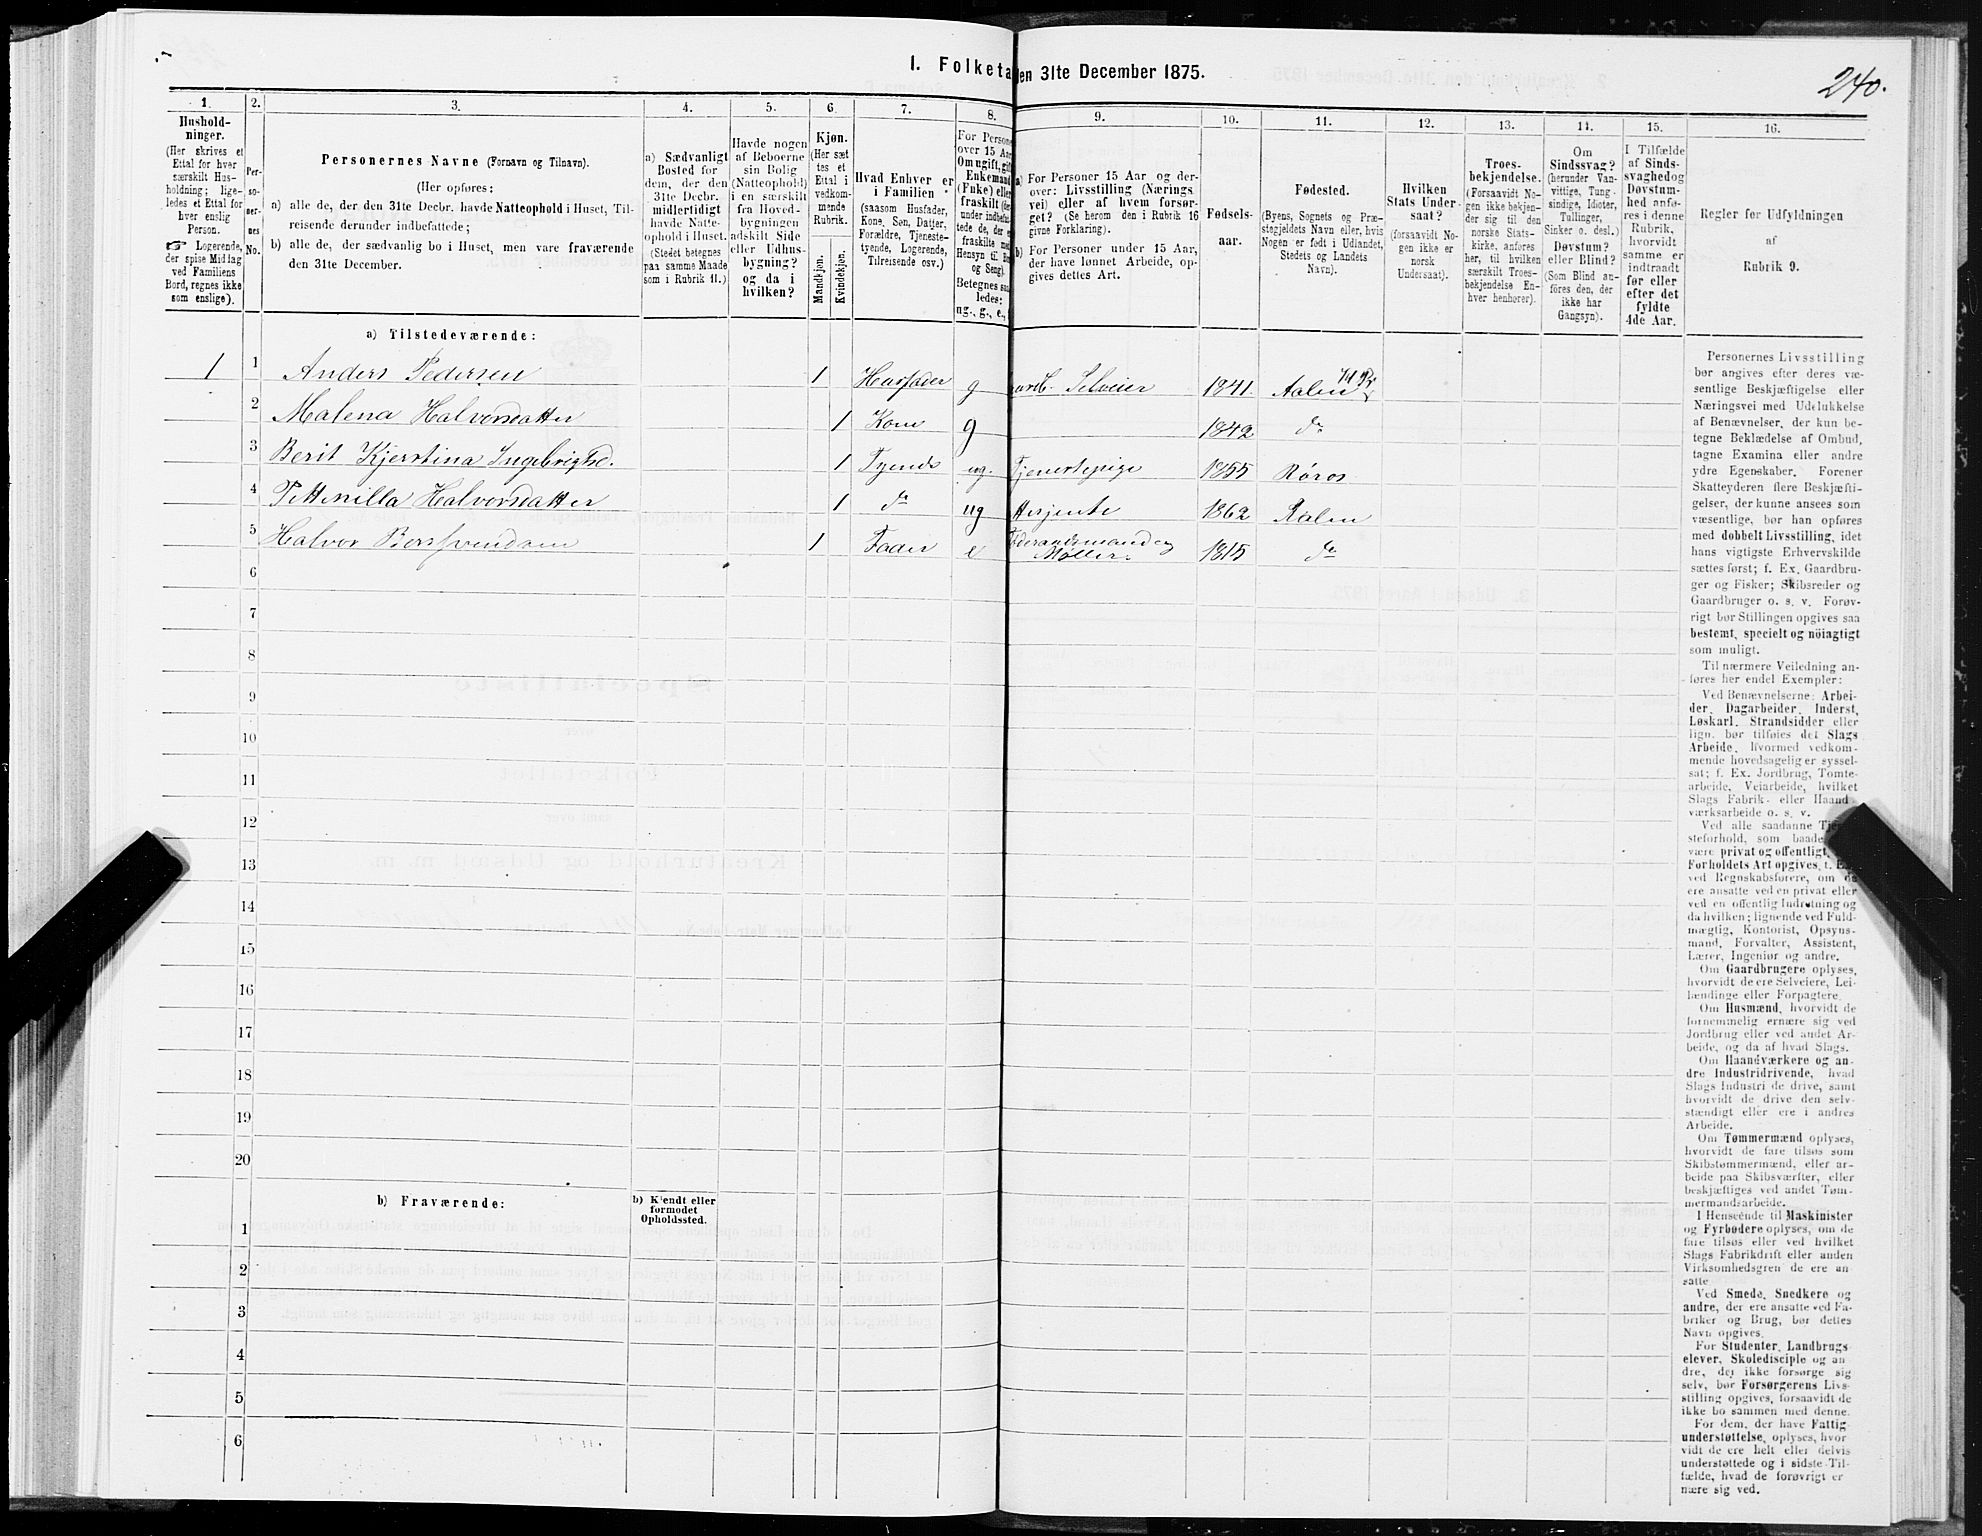 I. Folketa en 31te December 1875.
240.
1. 2. 3. 4. 5. 6. 7. 8. 9. 10. 11. 12. 13. 14. 15. 16.
Hushold-
ninger.
(Her skrives et
Ettal for hver
særskilt Hus-
holdning; lige-
ledes et Ettal for
hver enslig
Person.
☞ Logerende,
der spise Middag
ved Familiens
Bord, regnes ikke
som enslige).
Per-
so-
ner-
nes
No.
Personernes Navne (Fornavn og Tilnavn).
(Her opføres:
a) alle de, der den 31te Decbr. havde Natteophold i Huset, Til-
reisende derunder indbefattede;
b) alle de, der sædvanlig bo i Huset, men vare fraværende
den 31te December.
a) Sædvanligt
Bosted for
dem, der den
31te Decbr.
midlertidigt
havde Natte-
ophold i Huset.
(Stedet betegnes
paa samme Maade
som i Rubrik 11.)
Havde nogen
af Beboerne
sin Bolig
(Natteophold)
i en særskilt
fra Hoved-
bygningen
adskilt Side
eller Udhus-
bygning?
og da i
hvilken?
Kjøn.
(Her sæt
tes et
Ettal i
vedkom-
mende
Rubrik.
Mandkjøn.
Kvindekjøn.
Hvad Enhver er
i Familien
(saasom Husfader,
Kone, Søn, Datter,
Forældre, Tjeneste-
tyende, Logerende,
Tilreisende osv.)
For Persone
over 15 Aar
Om ugift, gift
Enkemand
(Enke) eller
fraskilt (de
under indbefat
tede de, der er
fraskilte med
Hensyn til Bo
og Seng).
Betegnes saa
ledes:
ug., g., e.,
a) For Personer 15 Aar og der-
over: Livsstilling (Nærings
vei) eller af hvem forsør-
get? (Se herom den i Rubrik 16
givne Forklaring).
b) For Personer under 15 Aar,
der have lønnet Arbeide, op-
gives dettes Art.
Fødsels-
aar.
Fødested.
(Byens, Sognets og Præ-
stegjeldets Navn eller, hvis
Nogen er født i Udlandet,
Stedets og Landets
Navn).
Hvilken
Stats Under-
saat?
(forsaavidt No-
gen ikke er
norsk
Undersaat).
Troes-
bekjendelse.
(Forsaavidt No-
gen ikke bekjen-
der sig til den
norske Stats-
kirke, anføres
her, til hvilken
særskilt Troes-
bekjendelse En-
hver henhører).
Om
Sindssvag?
(herunder Van-
vittige, Tung-
sindige, Idioter,
Tullinger,
Sinker o. desl.)
Døvstum?
eller Blind?
(Som Blind an-
føres den, der
ikke har
Gangsyn).
I Tilfælde
af Sinds-
svaghed og
Døvstum-
hed anfø-
res i denne
Rubrik,
hvorvidt
samme er
indtraadt
før eller
efter det
fyldte
4de Aar.
Regler for Udfyldningen
af
Rubrik 9.
a) Tilstedeværende:
1 1 Anders Pedersen 1 Husfader g Selveier 1841. Aalen
2 Malena Halvorsdatter 1 Kone g 1842 do
3 Berit Kjerstina Ingebrigtsd. 1 Tyende ug. Tjenestepige 1855 Røros
4 Pettenilla Halvorsdatter 1 do ug 1862 Aalen
5 Halvor Bersvendsen 1 Fader e Føderaadsmand og
Møller. 1815 do
6
7
8
9
10
11
12
13
14
15
16
17
18
19
20
b) Fraværende:
b) Kjendt eller
formodet
Opholdssted.
1
2
3
4
5
6
Personernes Livsstilling
bør angives efter deres væ-
sentlige Beskjæftigelse eller
Næringsvei med Udelukkelse
af Benævnelser, der kun be-
tegne Beklædelse af Ombud,
tagne Examina eller andre
ydre Egenskaber. Forener
Skatteyderen flere Beskjæfti-
gelser, der kunne ansees som
væsentlige, bør han opføres
med dobbelt Livsstilling, idet
hans vigtigste Erhvervskilde
sættes først; f. Ex. Gaardbru-
ger og Fisker; Skibsreder og
Gaardbruger o. s. v. Forøv-
rigt bør Stillingen opgives saa
bestemt, specielt og nöiagtigt
som muligt.
Til nærmere Veiledning an-
føres her endel Exempler:
Ved Benævnelserne: Arbei-
der, Dagarbeider, Inderst,
Løskarl, Strandsidder eller
lign. bør tilføies det Slags
Arbeide, hvormed vedkom-
mende hovedsagelig er syssel-
sat; f. Ex. Jordbrug, Tomte-
arbeide, Veiarbeide, hvilket
Slags Fabrik- eller Haand-
værksarbeide o. s. v.
Ved alle saadanne Tje
steforhold, som baade
være privat og offentligt,
Forholdets Art opgives, f. E
ved Regnskabsførere, om de
ere ansatte ved en privat eller
ved en offentlig Indretning og
da hvilken; lignende ved Fuld-
mægtig, Kontorist, Opsyns-
mand, Forvalter, Assistent,
Lærer, Ingeniør og andre.
Om Gaardbrugere oplyses,
hvorvidt de ere Selveiere, Lei-
lændinge eller Forpagtere.
Om Husmænd, hvorvidt de
fornemmelig ernære sig ved
Jordbrug eller ved andet Ar-
beide, og da af hvad Slags.
Om Haandværkere og an-
dre Industridrivende, hvad
Slags Industri de drive, samt
hvorvidt de drive den selv-
stændigt eller ere i andres
Arbeide.
Om Tømmermænd oplyses,
hvorvidt de fare tilsøs som
Skibstømmermænd, eller ar-
beide paa Skibsværfter, eller
beskjæftiges ved andet Tøm-
mermandsarbeide.
I Henseende til Maskinister
og Fyrbødere oplyses, om de
fare tilsøs eller ved hvilket
Slags Fabrikdrift eller anden
Virksomhedsgren de ere an-
satte
Ved Smede, Snedkere og
andre, der ere ansatte ved Fa-
briker og Brug, bør dettes
Navn opgives.
For Studenter, Landbrugs-
elever, Skoledisciple og an
dre, der ikke forsørge sig
selv, bør Forsørgerens Livs-
stilling opgives, forsaavidt de
ikke bo sammen med denne.
For dem, der have Fattig-
understøttelse, oplyses, hvor-
vidt de ere helt eller delvis
understøttede og i sidste Til-
fælde, hvad de forøvrigt er
nære sig ved.